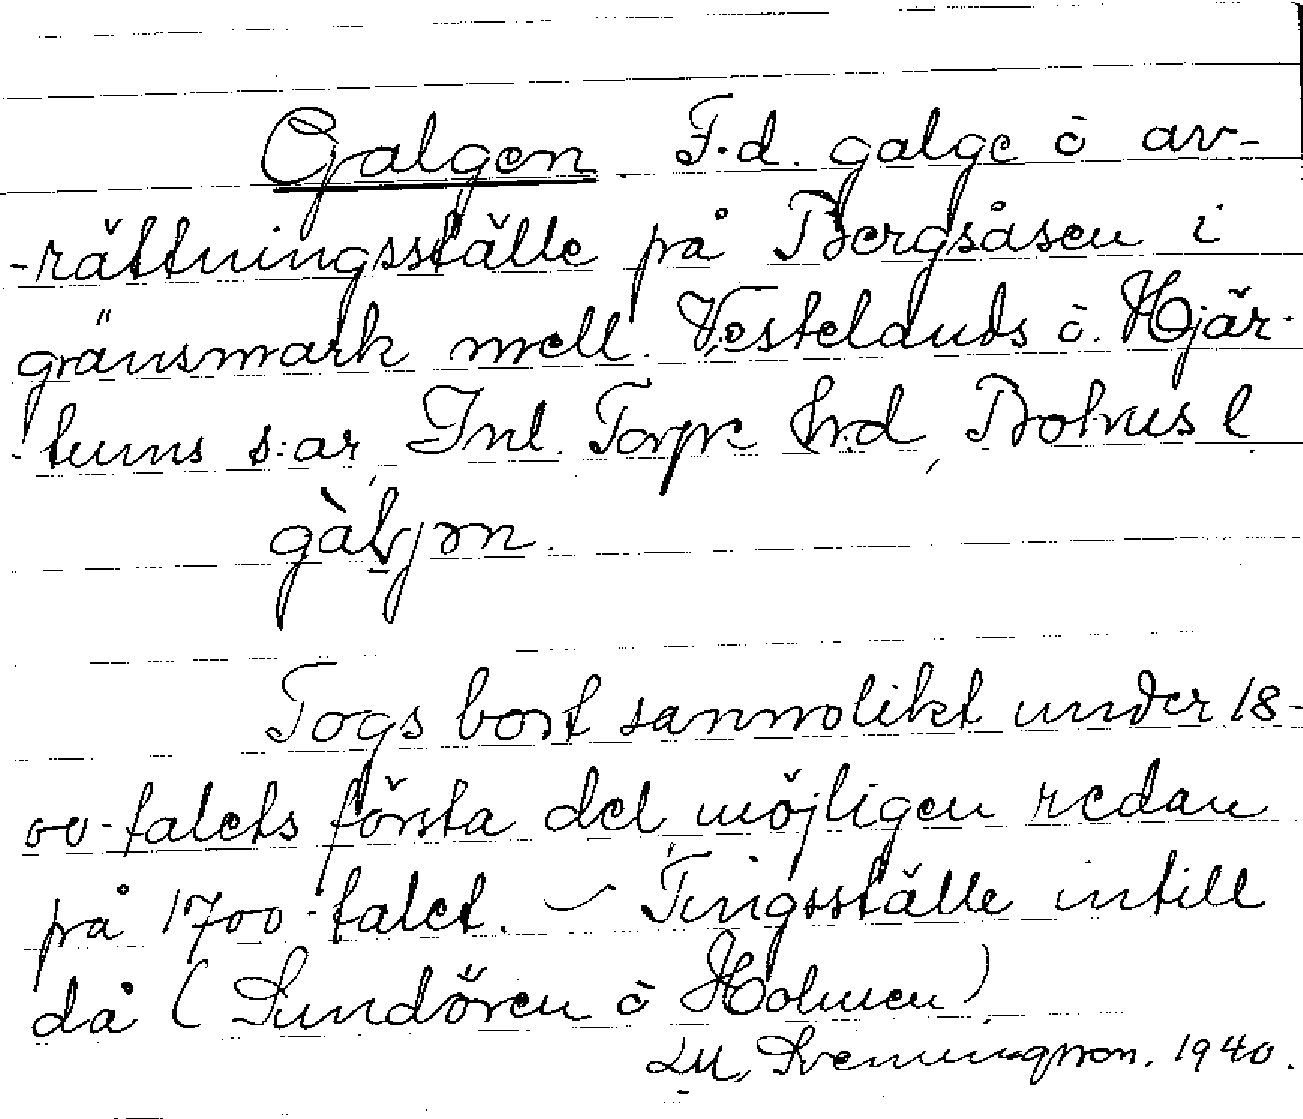 Galgen F.d. galge ò av-
-rättningsställe på Bergsåsen i
gränsmark mell. Vestelands ò. Hjär-
-tums s:ar, Inl. Torpe hrd, Bohusl
gàljən.
Togs bort sannolikt under 18-
00-talets första del, möjligen redan
på 1700-talet. – Tingsställe intill
då (Sundören ò Holmen).
LM, Svenungsson. 1940.